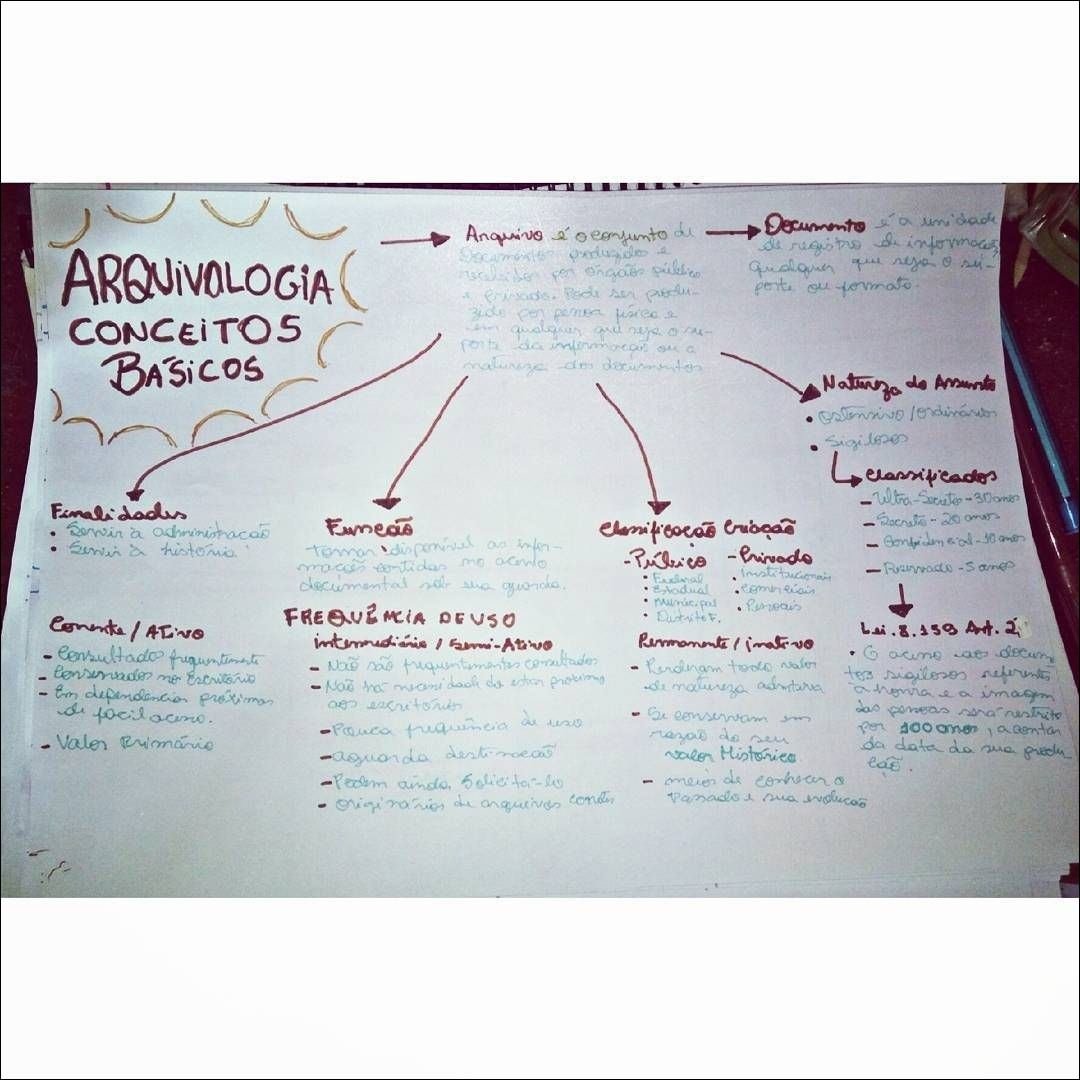 ARQUIVOLOGIA
CONCEITOS
BÁSICOS
Arquivo é o conjunto de
Documentos produzidos e
recebidos por orgãos público
e privado. Pode ser produ-
zido por pessoa física e
em qualquer que seja o su-
porte da informação ou a
natureza dos documentos
Documento é a unidade
de registro de informações
qualquer que seja o su-
porte ou formato.
Natureza do Assunto
• ostensivo/ordinários
• Sigilosos
Classificados
- Ultra-Secreto - 30 anos
- Secreto - 20 anos
- Confidencial - 10 anos
- Reservado - 5 anos
Lei. 8.159 Art. 2
• O acesso aos docum
tos sigilosos referentes
a honra e a imagem
das pessoas será restrito
por 100 anos, a contar
da data da sua produ
ção.
Finalidades
• Servir à administração
• Servir à história
Função
tornar disponível as infor-
mações contidas no acervo
documental sob sua guarda.
Classificação Criação
- Público
• Federal
• Estadual
• Municipal
• Distrito F.
- Privado
• Institucionais
• Comerciais
• Pessoais
FREQUÊNCIA DE USO
Corrente / Ativo
- Consultados frequentemente
- Conservados no Escritório
- Em dependencias próximas
de fácil acesso.
- Valor Primário
intermediário / Semi-Ativo
- Não são frequentementes consultados
- Não há necessidade de estar próximo
aos escritórios
- Pouca frequência de uso
- aguarda destinação
- Podem ainda Solicitá-lo
- originários de arquivos
Permanente / inativo
- Perderam todo valor
de natureza
- Se conservam em
razão do seu
valor Histórico.
- meios de conhecer o
Passado e sua evolução